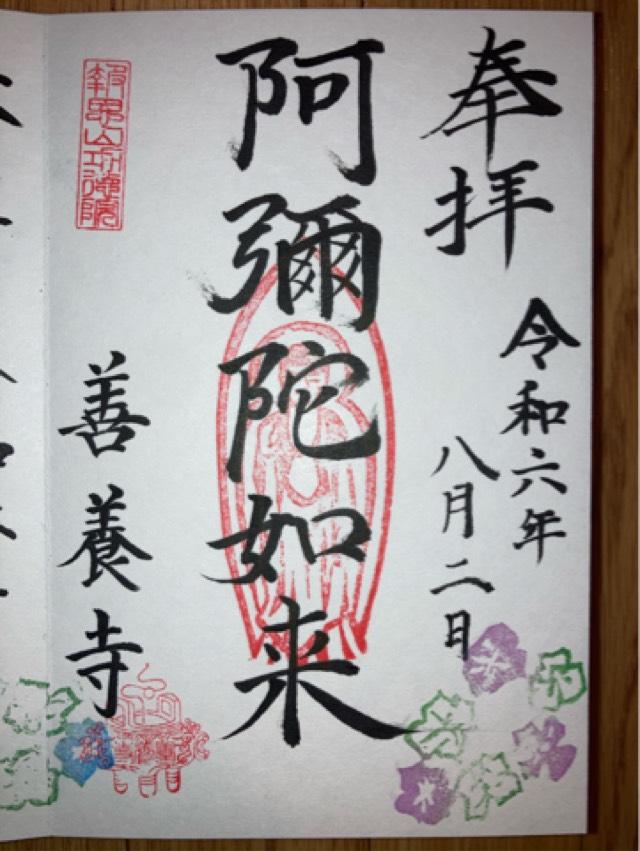 奉拝
令和六年
八月二日
阿彌陀如来
善養寺